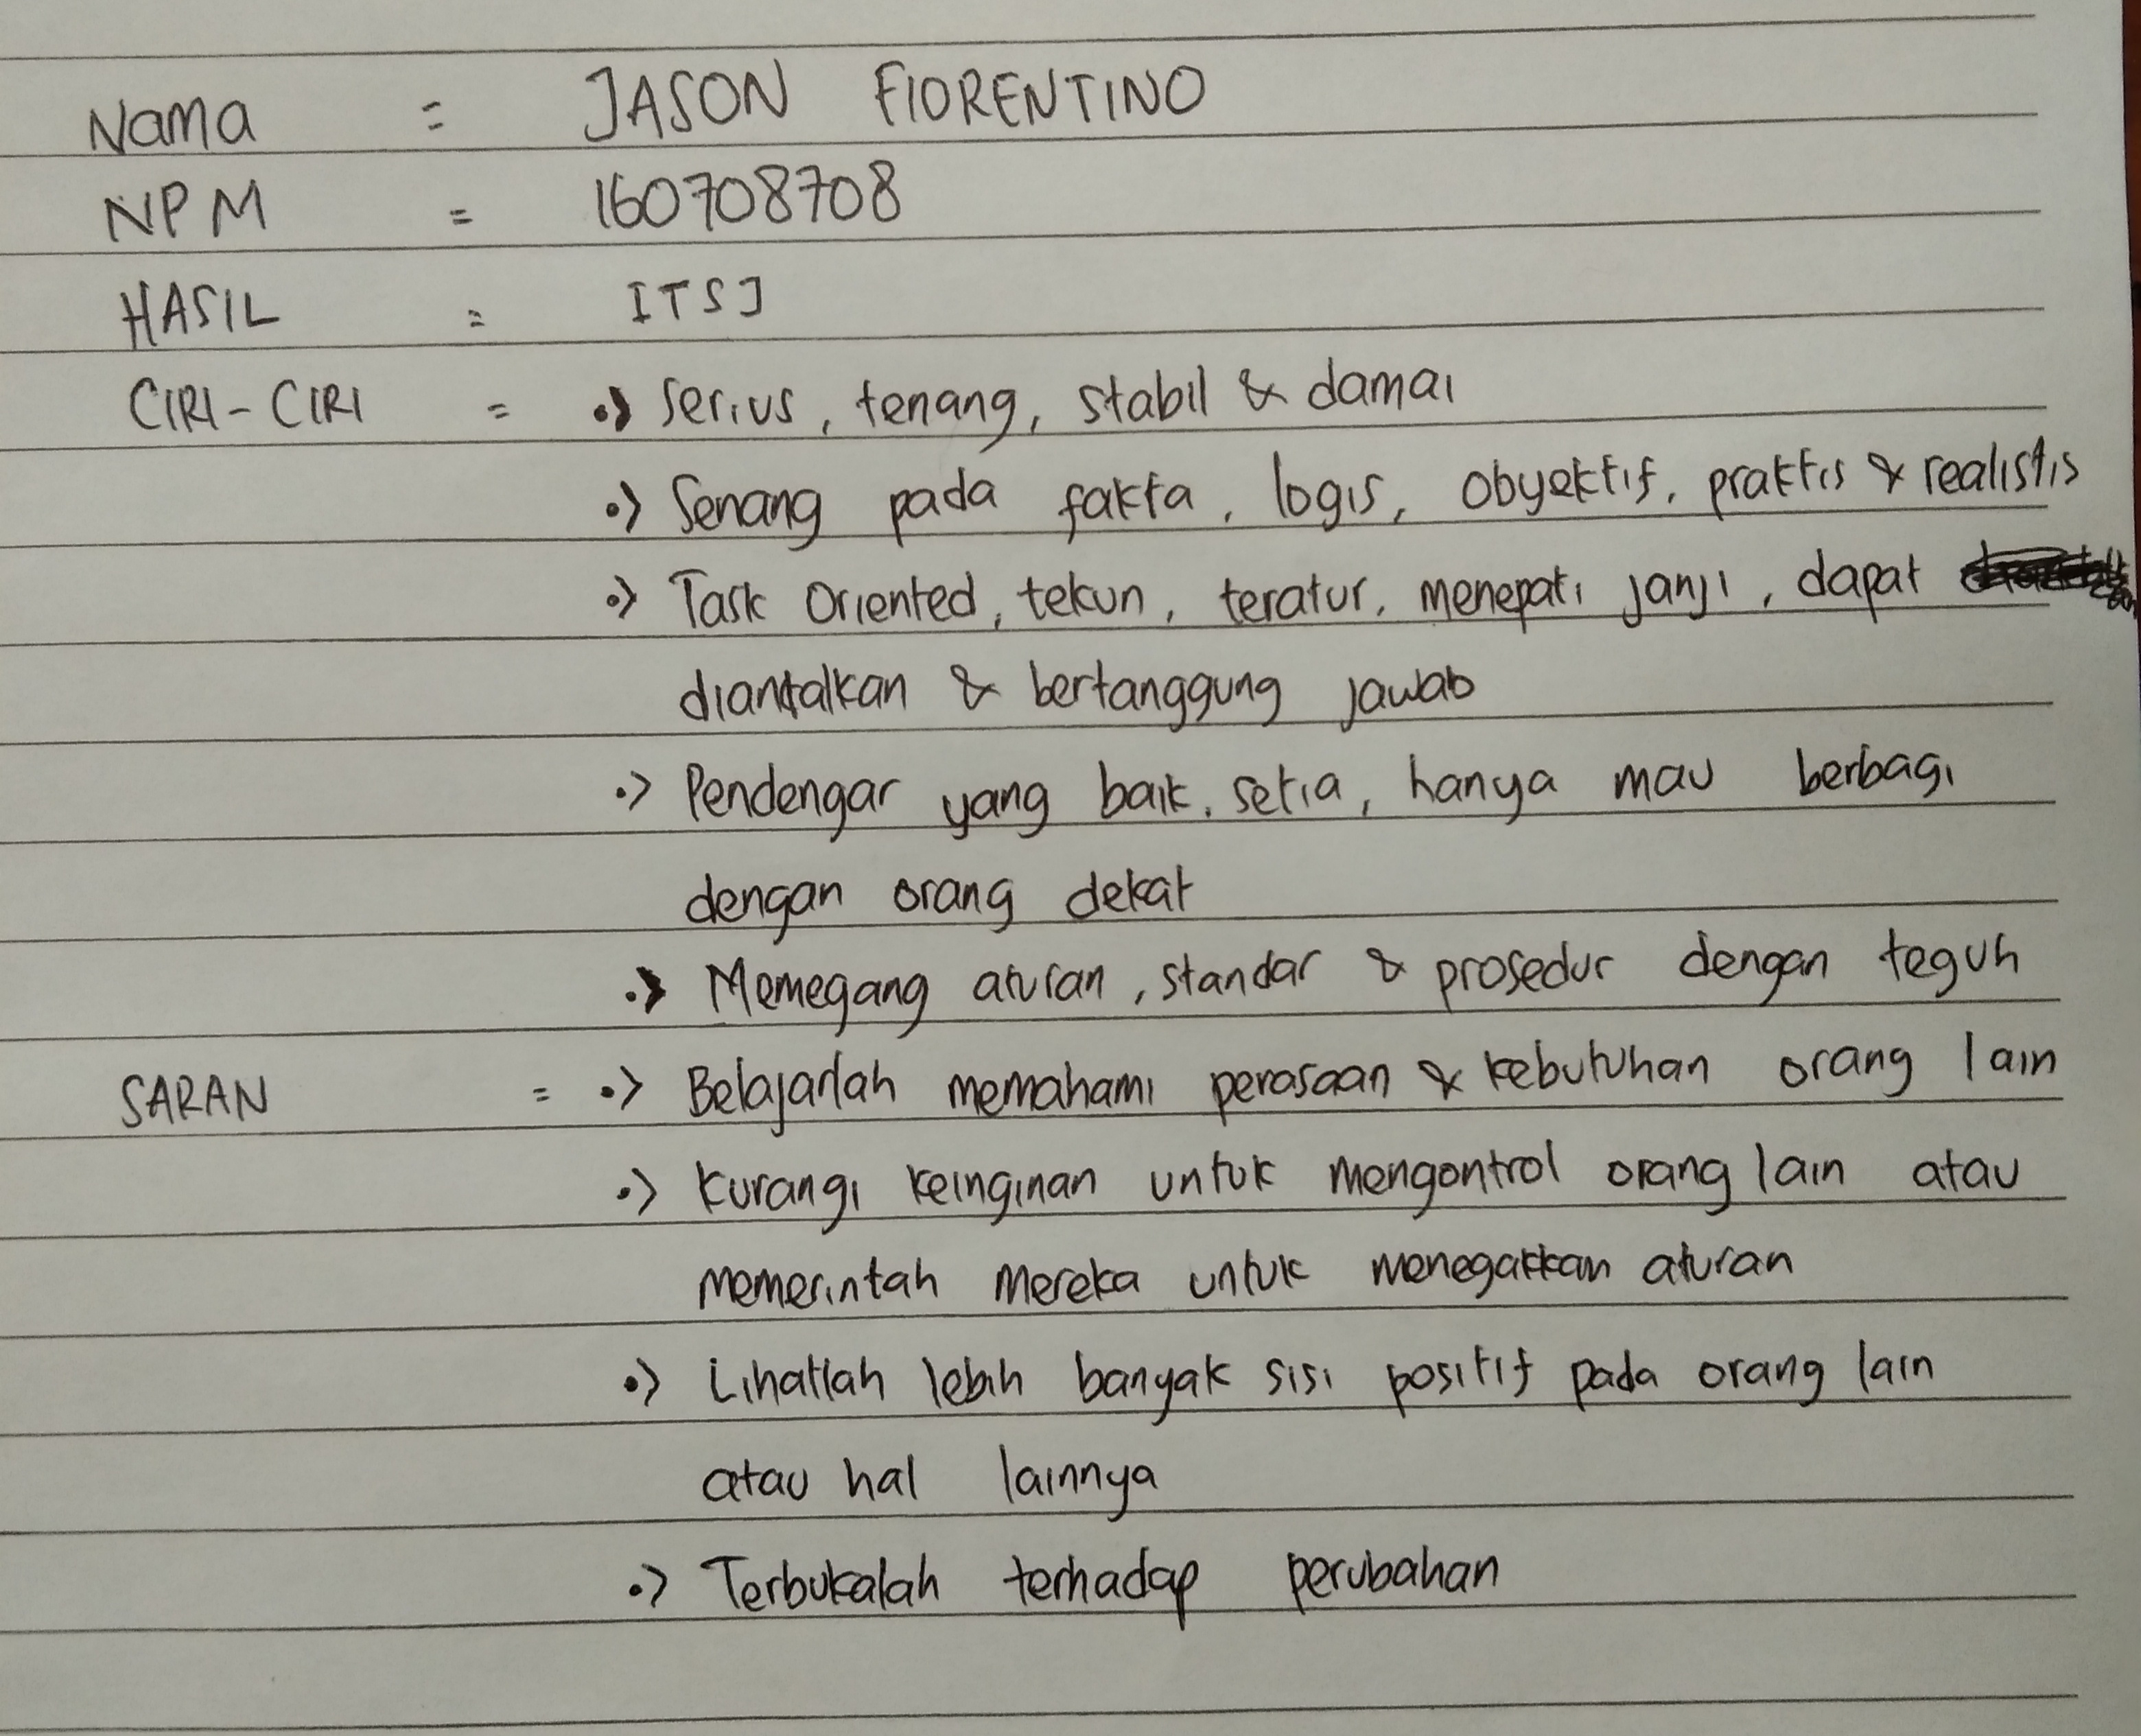 Nama = JASON FIORENTINO
NPM = 160708708
HASIL = ITSJ
CIRI-CIRI = •> Serius, tenang, stabil & damai
•> Senang pada fakta, logis, obyektif, praktis & realistis
•> Task Oriented, tekun, teratur, menepati janji, dapat
diandalkan & bertanggung jawab
•> Pendengar yang baik, setia, hanya mau berbagi
dengan orang dekat
•> Memegang aturan, standar & prosedur dengan teguh
SARAN = •> Belajarlah memahami perasaan & kebutuhan orang lain
•> Kurangi keinginan untuk mengontrol orang lain atau
memerintah mereka untuk menegakkan aturan
•> Lihatlah lebih banyak sisi positif pada orang lain
atau hal lainnya
•> Terbukalah terhadap perubahan